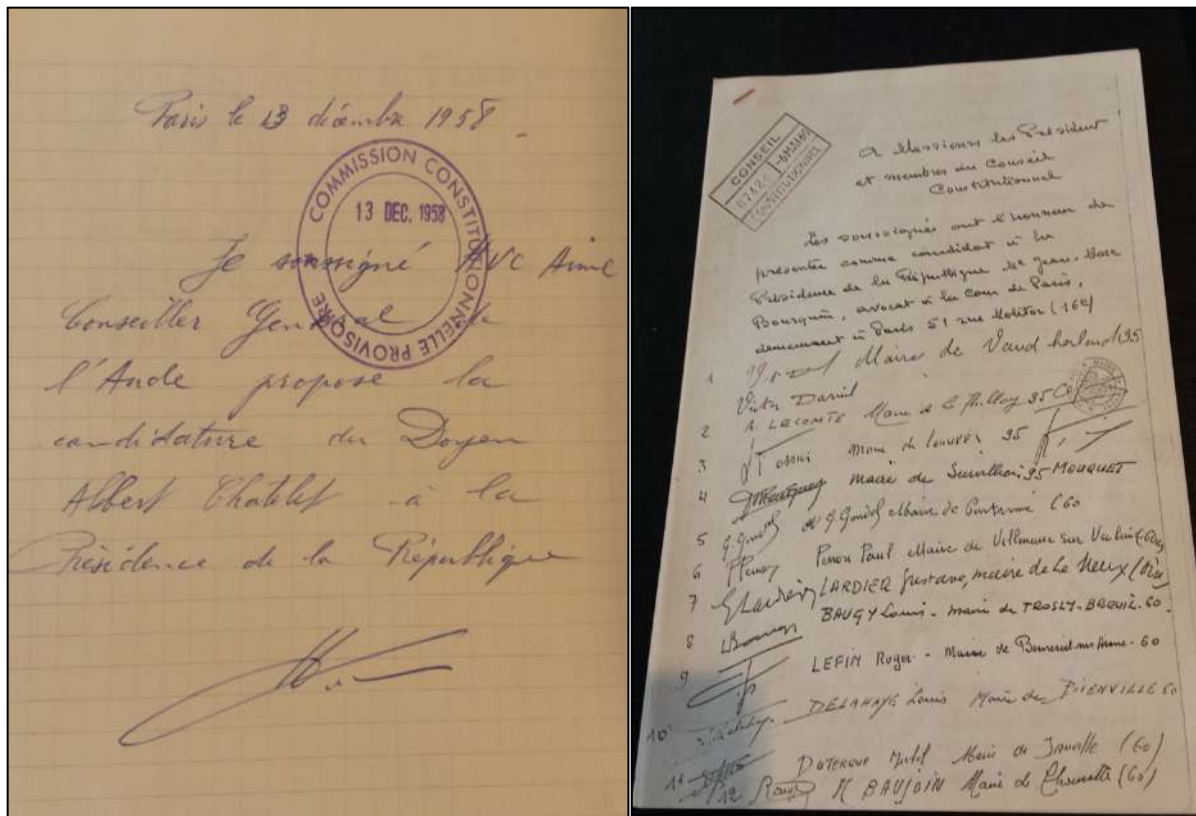 Paris le 13 décembre 1958
COMMISSION CONSTITUTIONNELLE PROVISOIRE
13 DEC. 1958
Je soussigné Aimé
Conseiller Général de
l'Aude propose la
candidature du Doyen
Albert Chatelet à la
Présidence de la République
CONSEIL
CONSTITUTIONNEL
A Messieurs les Président
et membres du Conseil
Constitutionnel
Les soussignés ont l'honneur de
présenter comme candidat à la
Présidence de la République Me Jean-Marc
avocat à la Cour de Paris,
demeurant à Paris 51 rue Molitor (16e)
1 Maire de Vaudherland 95
Victor
2 A. LECOMTE Maire de le Thillay 95
3 maire de Louvres 95
4 maire de Survilliers 95 MOUQUET
5 Maire de (60
6 Paul Maire de sur
7 LARDIER Gustave, maire de Le
8 BAUGY Louis - maire de TROSLY-BREUIL. 60.
9 LEFIN Roger - Maire de 60
10 DELAHAYE Louis Maire de BIENVILLE 60
11 Maire de Janville (60)
12 BAUJOIN Maire de (60)